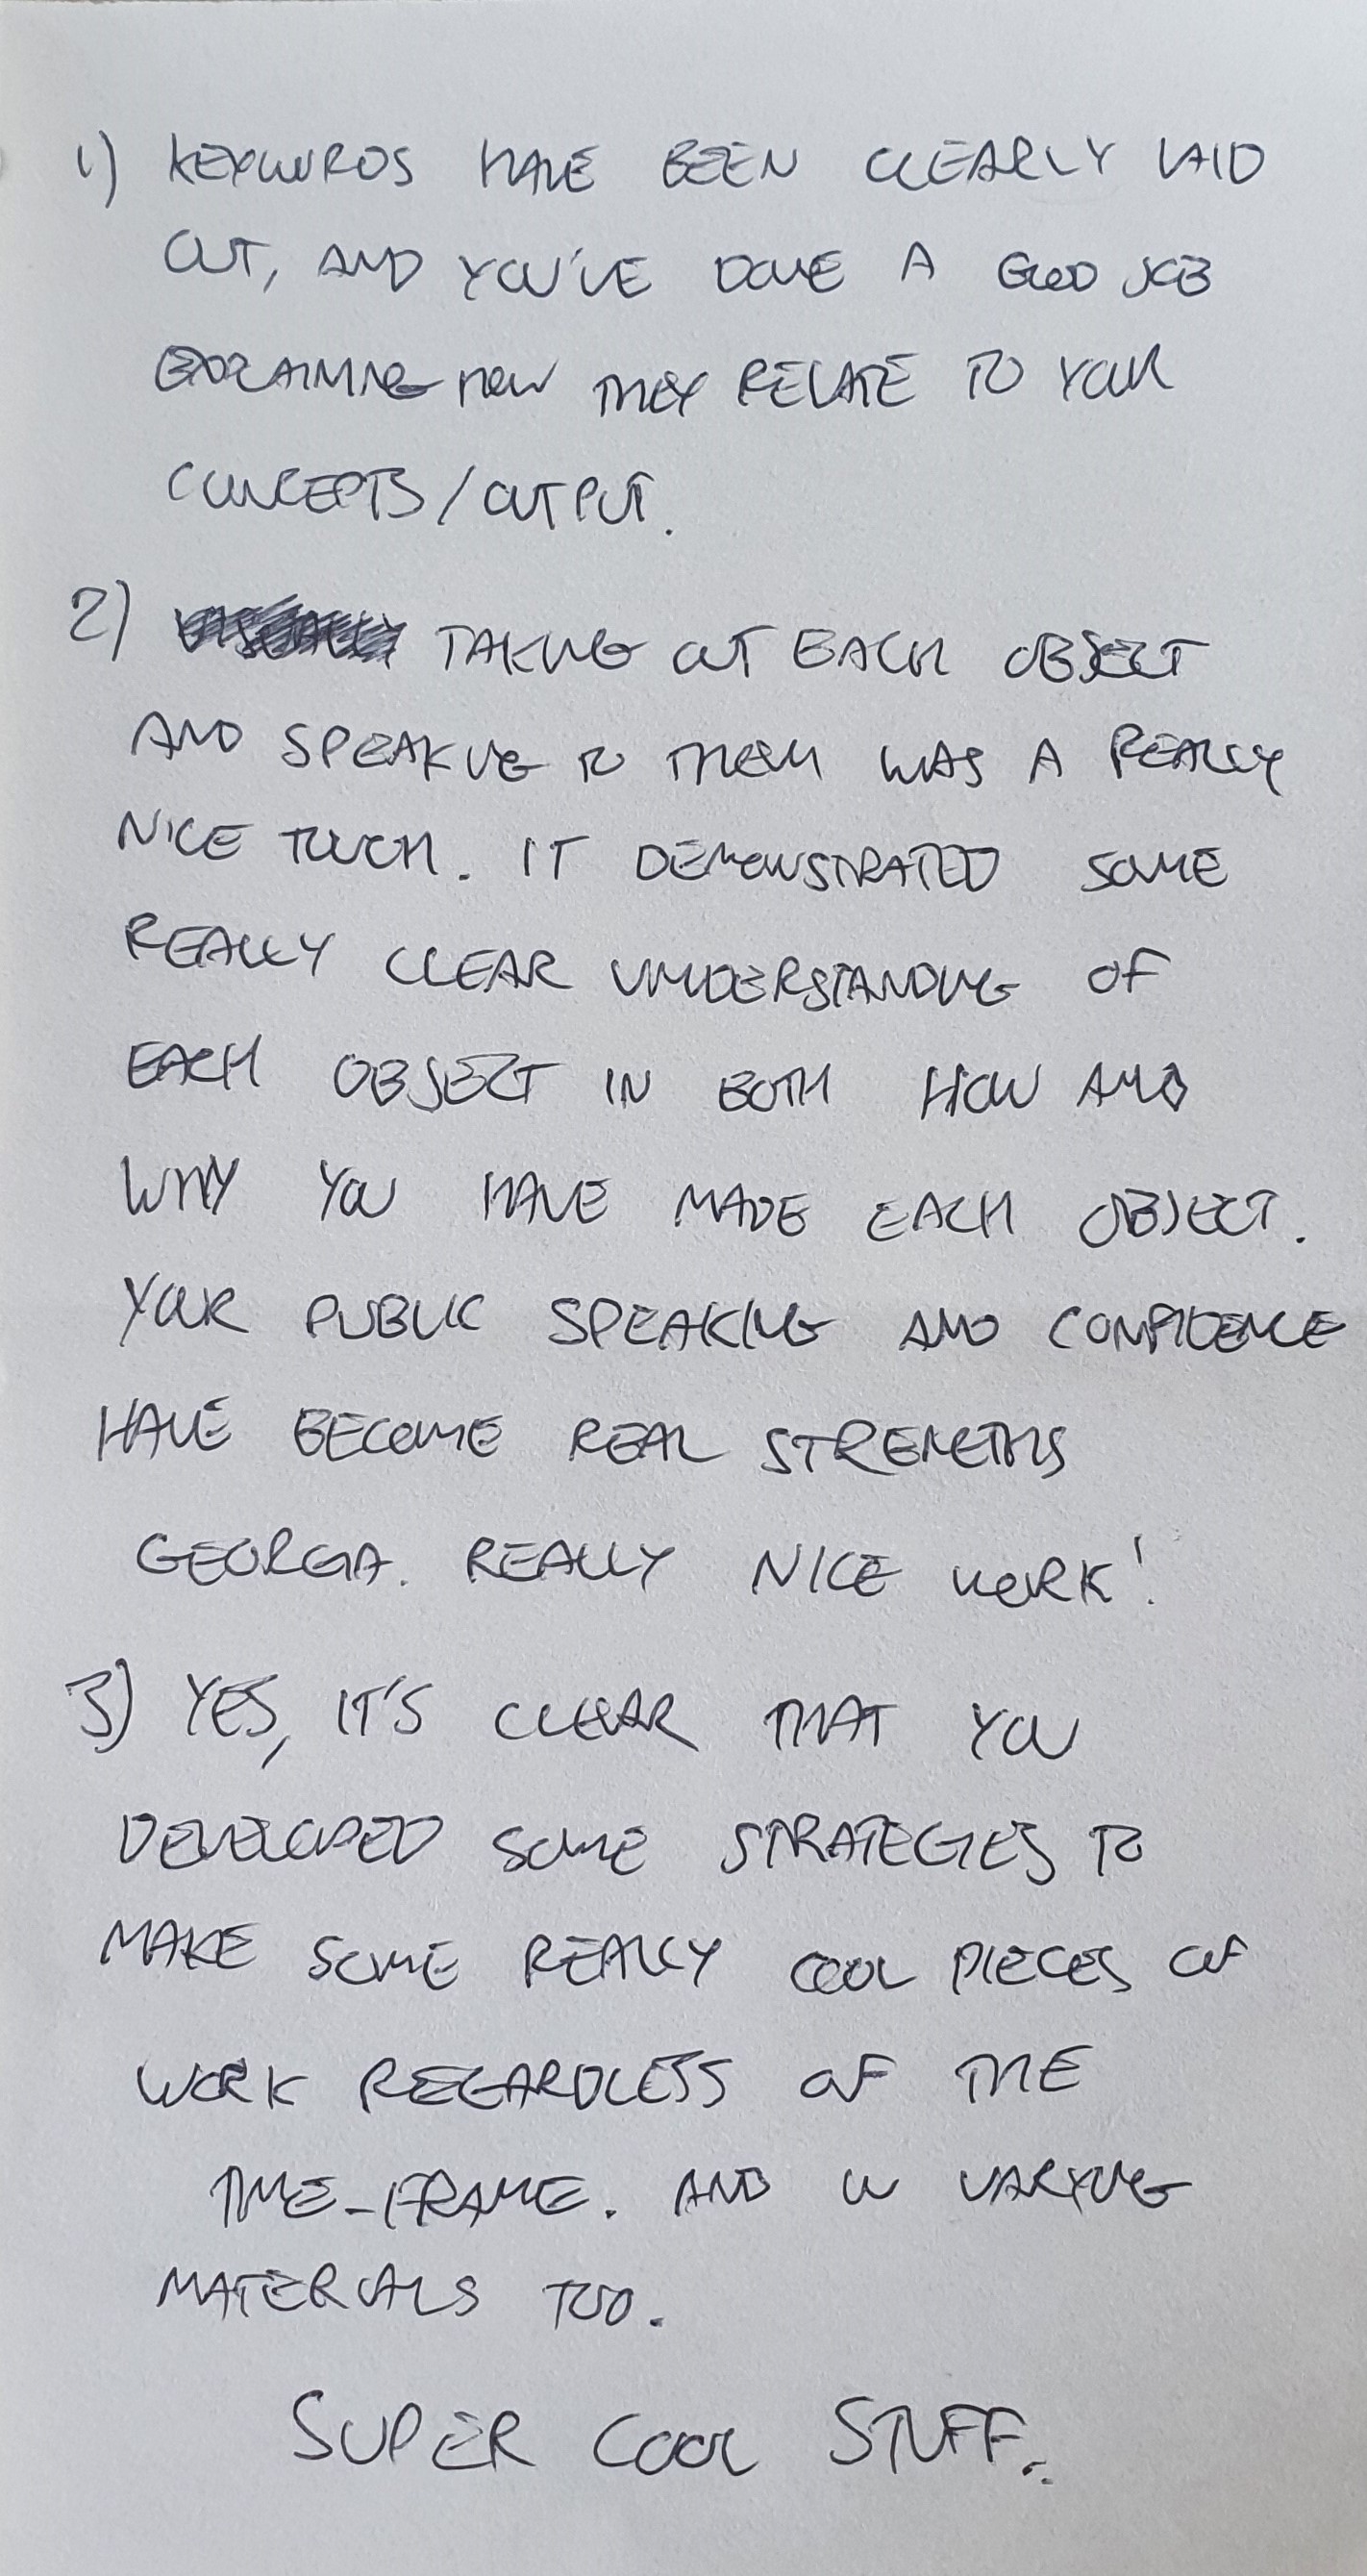 1) KEYWORDS HAVE BEEN CLEARLY LAID
OUT, AND YOU'VE DONE A GOOD JOB
EXPLAINING HOW THEY RELATE TO YOUR
CONCEPTS/OUTPUT.
2) TAKING OUT EACH OBJECT
AND SPEAKING TO THEM WAS A REALLY
NICE TOUCH. IT DEMONSTRATED SOME
REALLY CLEAR UNDERSTANDING OF
EACH OBJECT IN BOTH HOW AND
WHY YOU HAVE MADE EACH OBJECT.
YOUR PUBLIC SPEAKING AND CONFIDENCE
HAVE BECOME REAL STRENGTHS
GEORGIA. REALLY NICE WORK!
3) YES, IT'S CLEAR THAT YOU
DEVELOPED SOME STRATEGIES TO
MAKE SOME REALLY COOL PIECES OF
WORK REGARDLESS OF THE
TIME-FRAME. AND IN VARYING
MATERIALS TOO.
SUPER COOL STUFF.